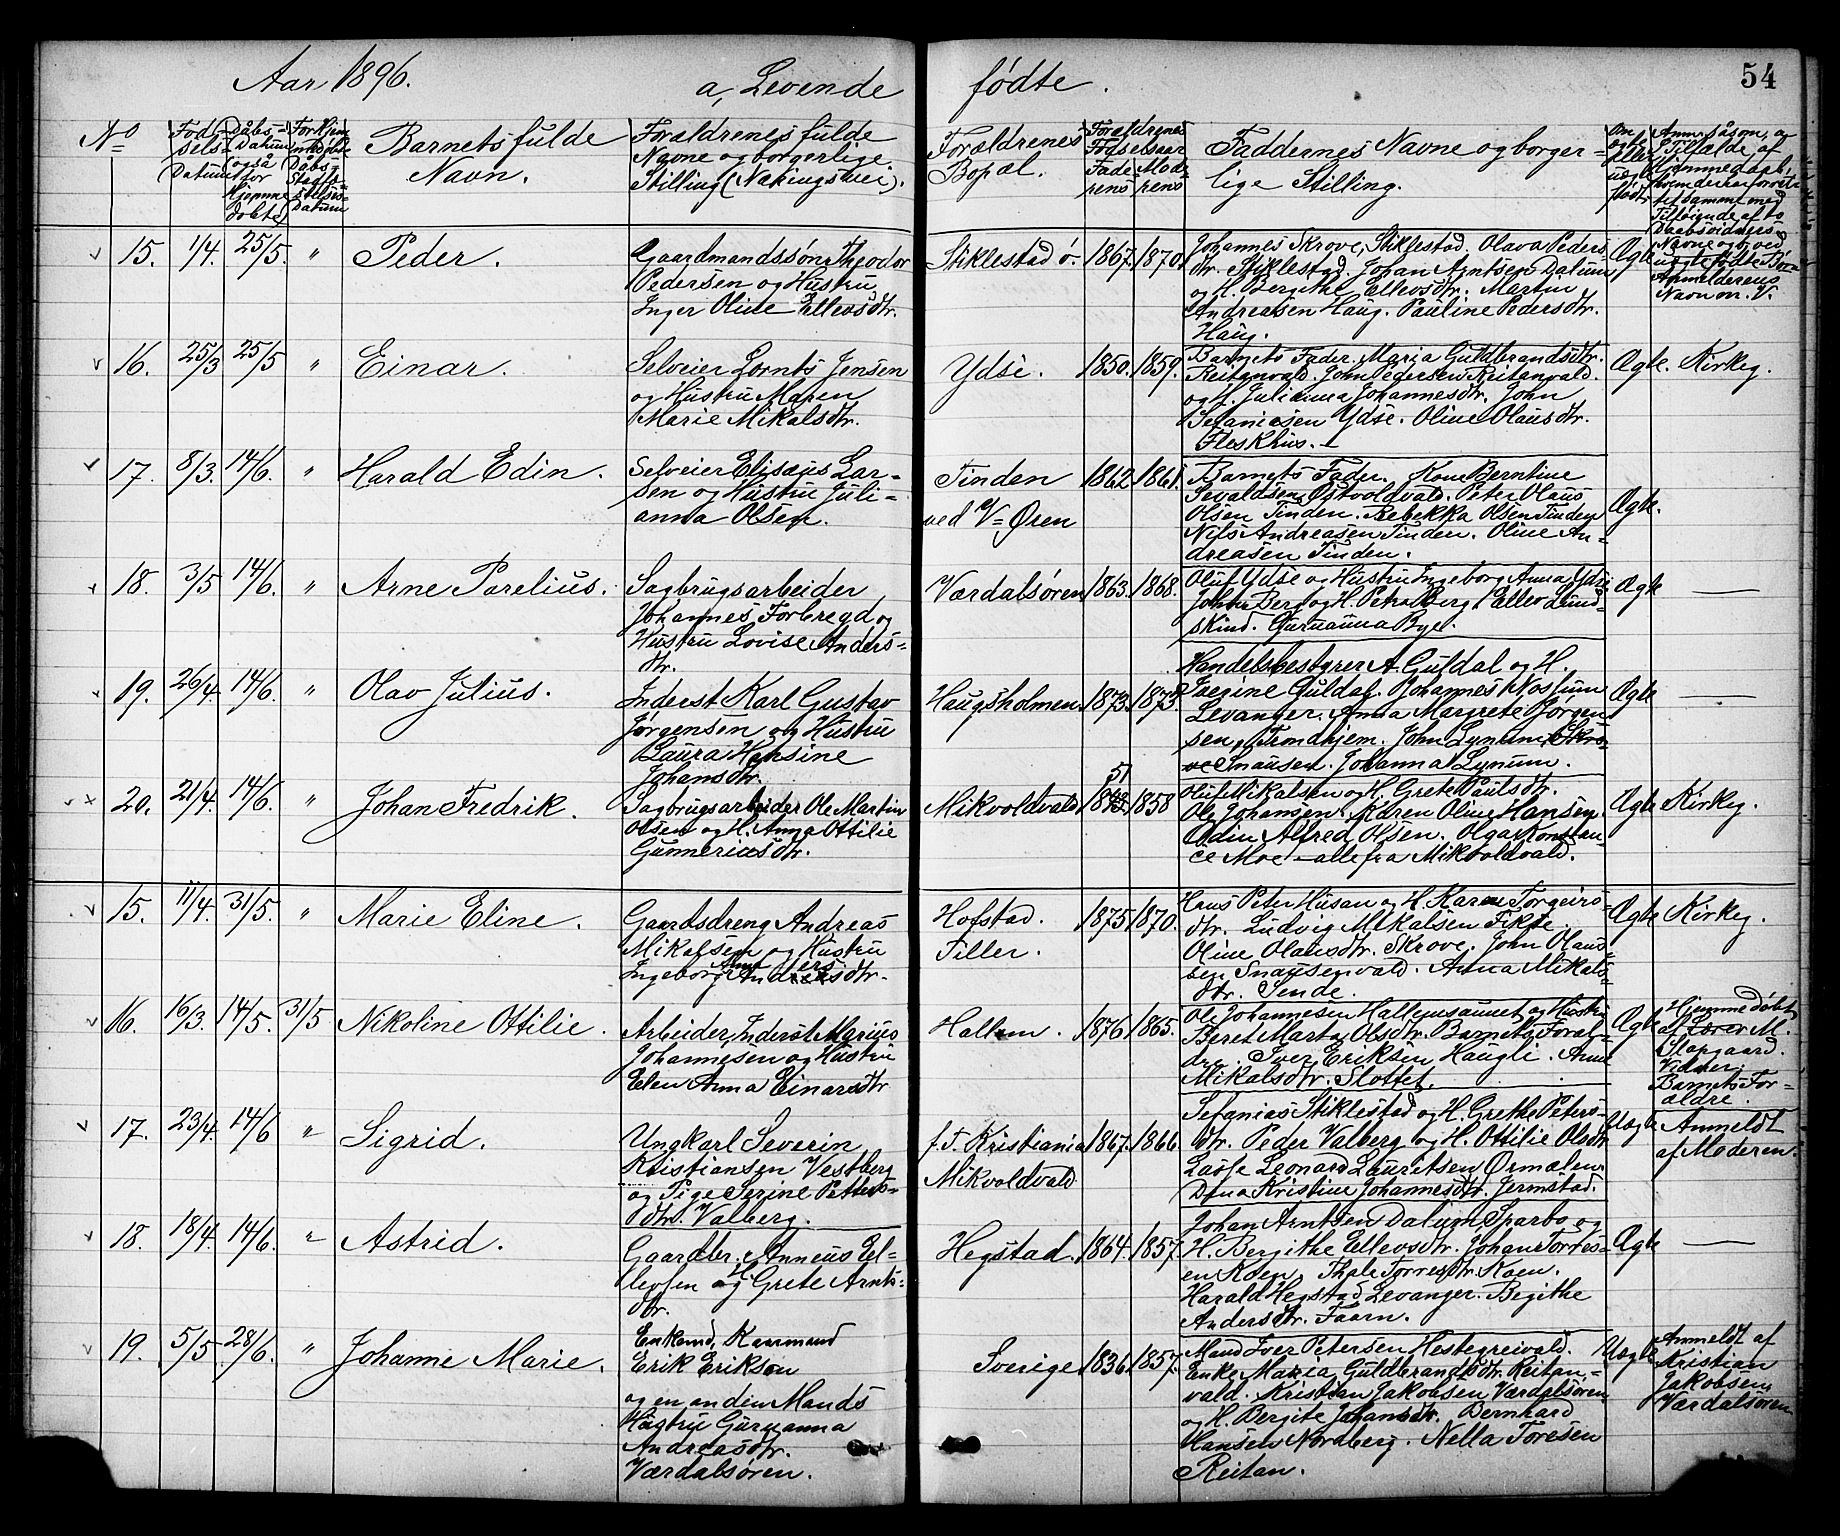 Aar 1896. a, Levende fødte.
54
No
Fødselsdatum
Dåbs-Datum også for hjemmedøbte
Barnets fulde
Navn.
Forældrenes fulde
Navne og borgerlige
Stilling (Næringsvei).
Forældrenes
Bopæl.
Forældrenes
Fødselsaar
Faderens
Moderens
Faddernes Navne og borger-
lige Stilling.
15. 1/4. 25/5. " Peder.
Gaardmandssøn Theodor
Pedersen og Hustru
Inger Oline Ellevsdtr.
Stiklestad ø. 1867. 1870.
Johannes Skrove, Stiklestad. Olava Peders
dtr. Stiklestad. Johan Arntsen Dalum
og H. Bergithe Ellevsdtr. Martin
Andreassen Haug. Pauline Pedersdtr.
Haug.
Ægte
16. 25/3 25/5 " Einar.
Selveier Lornts Jensen
og Hustru Maren
Marie Mikalsdtr.
Ydse. 1850. 1859.
Barnets Fader. Maria Guldbrandsdtr.
Reitanvald. John Pedersen Reitenvald.
og H. Julianna Johannesdtr. John
Sefaniasen Ydse. Oline Olausdtr.
Fleskhus.
Ægte. Kirkeg.
17. 8/3. 14/6. " Harald Edin.
Selveier Elisæus Lar-
sen og Hustru Juli-
anna Olsen.
Tinden
ved V= Øren
1862 1861.
Barnets Fader. Kone Berntine
Sevaldsen Østvoldvald. Peter Olaus
Olsen Tinden. Rebekka Olsen Tinden
Nils Andreasen Tinden. Oline An-
dreasen Tinden.
Ægte.
18. 3/5 14/6. " Arne Parelius.
Sagbrugsarbeider
Johannes Forbregd og
Hustru Lovise Anders-
dtr.
Værdalsøren 1863. 1868.
Oluf Ydse og Hustru Ingeborg Anna Ydse
John Berg og H. Petra Berg. Ellev Lund-
skind. Gurianna Bye.
Ægte
19. 26/4. 14/6. " Olav Julius.
Inderst Karl Gustav
Jørgensen og Hustru
Laura Hansine
Johansdtr.
Haugsholmen. 1873. 1873.
Handelsbestyrer A. Guldal og H.
Guldal. Johannes Nossum
Levanger. Anna Margrete Jørgen
sen, Trondhjem. John Lynum
Snausen. Johanna Lynum.
Ægte
20. 21/4. 14/6. " Johan Fredrik.
Sagbrugsarbeider Ole Martin
Olsen og H. Anna Ottilie
Gunneriusdtr.
Mikvoldvald 51 1858
Oluf Mikalsen og H. Grete Paulsdtr.
Ole Johansen. Karen Oline Hansen.
Odin Alfred Olsen. Olga Konstan-
ce Moe - alle fra Mikvoldvald.
Ægte Kirkeg.
15. 11/4. 31/5. " Marie Eline.
Gaardsdreng Andreas
Mikalsen og Hustru
Ingeborg Anna Andersdtr.
Hofstad.
Tiller.
1875 1870.
Hans Peter Husen og H. Karen Torgeirs-
dtr. Ludvig Mikalsen Fikse.
Oline Olausdtr. Skrove. John Olaus-
sen Snausenvald. Anna Mikals-
dtr. Sende.
Ægte Kirkeg.
16. 16/3. 14/5. 31/5 Nikoline Ottilie.
Arbeider, Inderst Marius
Johannesen og Hustru
Elen Anna Einarsdtr
Hallem. 1876. 1865.
Ole Johannesen Hallemsaunet og Hustru
Beret Marta Olsdtr. Barnets Foræl-
dre. Iver Eriksen Haugli. Anne
Mikalsdtr. Slottet.
Ægte
Hjemmedøbt
af Lærer M.
Slapgaard.
Vidner:
Barnets For-
ældre.
17. 23/4. 14/6 " Sigrid.
Ungkarl Severin
Kristiansen Vestberg
og Pige Serine Petters-
dtr. Valberg.
f. T. Kristiania
Mikvoldvald
1867. 1866.
Sefanias Stiklestad og H. Grethe Peters-
dtr. Peder Valberg og H. Ottilie Olsdtr
Leonard Lauritsen Ørmelen.
Kristine Johannesdtr. Jermstad.
Uægte
Anmeldt
af Moderen.
18. 18/4. 14/6. " Astrid.
Gaardbr. Anneus El-
levsen og H. Grete Arnts-
dtr.
Hegstad. 1864. 1857.
Johan Arntsen Dalum, Sparbo og
H. Bergithe Ellevsdtr. Johan Torres-
en Koen. Thale Torresdtr. Koen.
Harald Hegstad Levanger. Begithe
Andersdtr. Faarn.
Ægte
19. 5/5 28/6. " Johanne Marie.
Enkemd, Kaarmand
Erik Erikson
og en anden Mands
Hustru Gurianna
Andreasdtr.
Værdalsøren.
Sverige 1836. 1857.
Mand Iver Petersen Hestegreivald.
Enke Maria Guldbrandsdtr. Reitan-
vald. Kristian Jakobsen Værdalsøren
og H. Bergite Johansdtr. Bernhard
Hansen Nordberg. Nella Toresen
Reitan.
Uægte
Anmeldt af
Kristian
Jakobsen
Værdalsøren